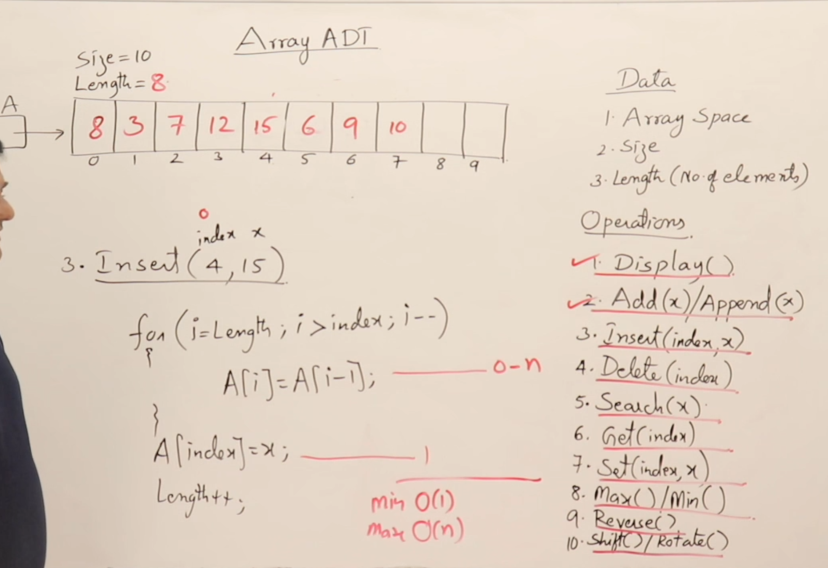 Array ADT
Size=10
Length=8
A
8 3 7 12 15 6 9 10
0 1 2 3 4 5 6 7 8 9
0
index x
3. Insert(4,15)
for(i=Length; i>index; i--)
{
A[i]=A[i-1]; 0-n
}
A[index]=x; 1
Length++;
min O(1)
max O(n)
Data
1. Array Space
2. Size
3. Length (No. of elements)
Operations
✓1. Display()
✓2. Add(x)/Append(x)
3. Insert(index,x)
4. Delete(index)
5. Search(x)
6. Get(index)
7. Set(index,x)
8. Max()/Min()
9. Reverse()
10. Shift()/Rotate()